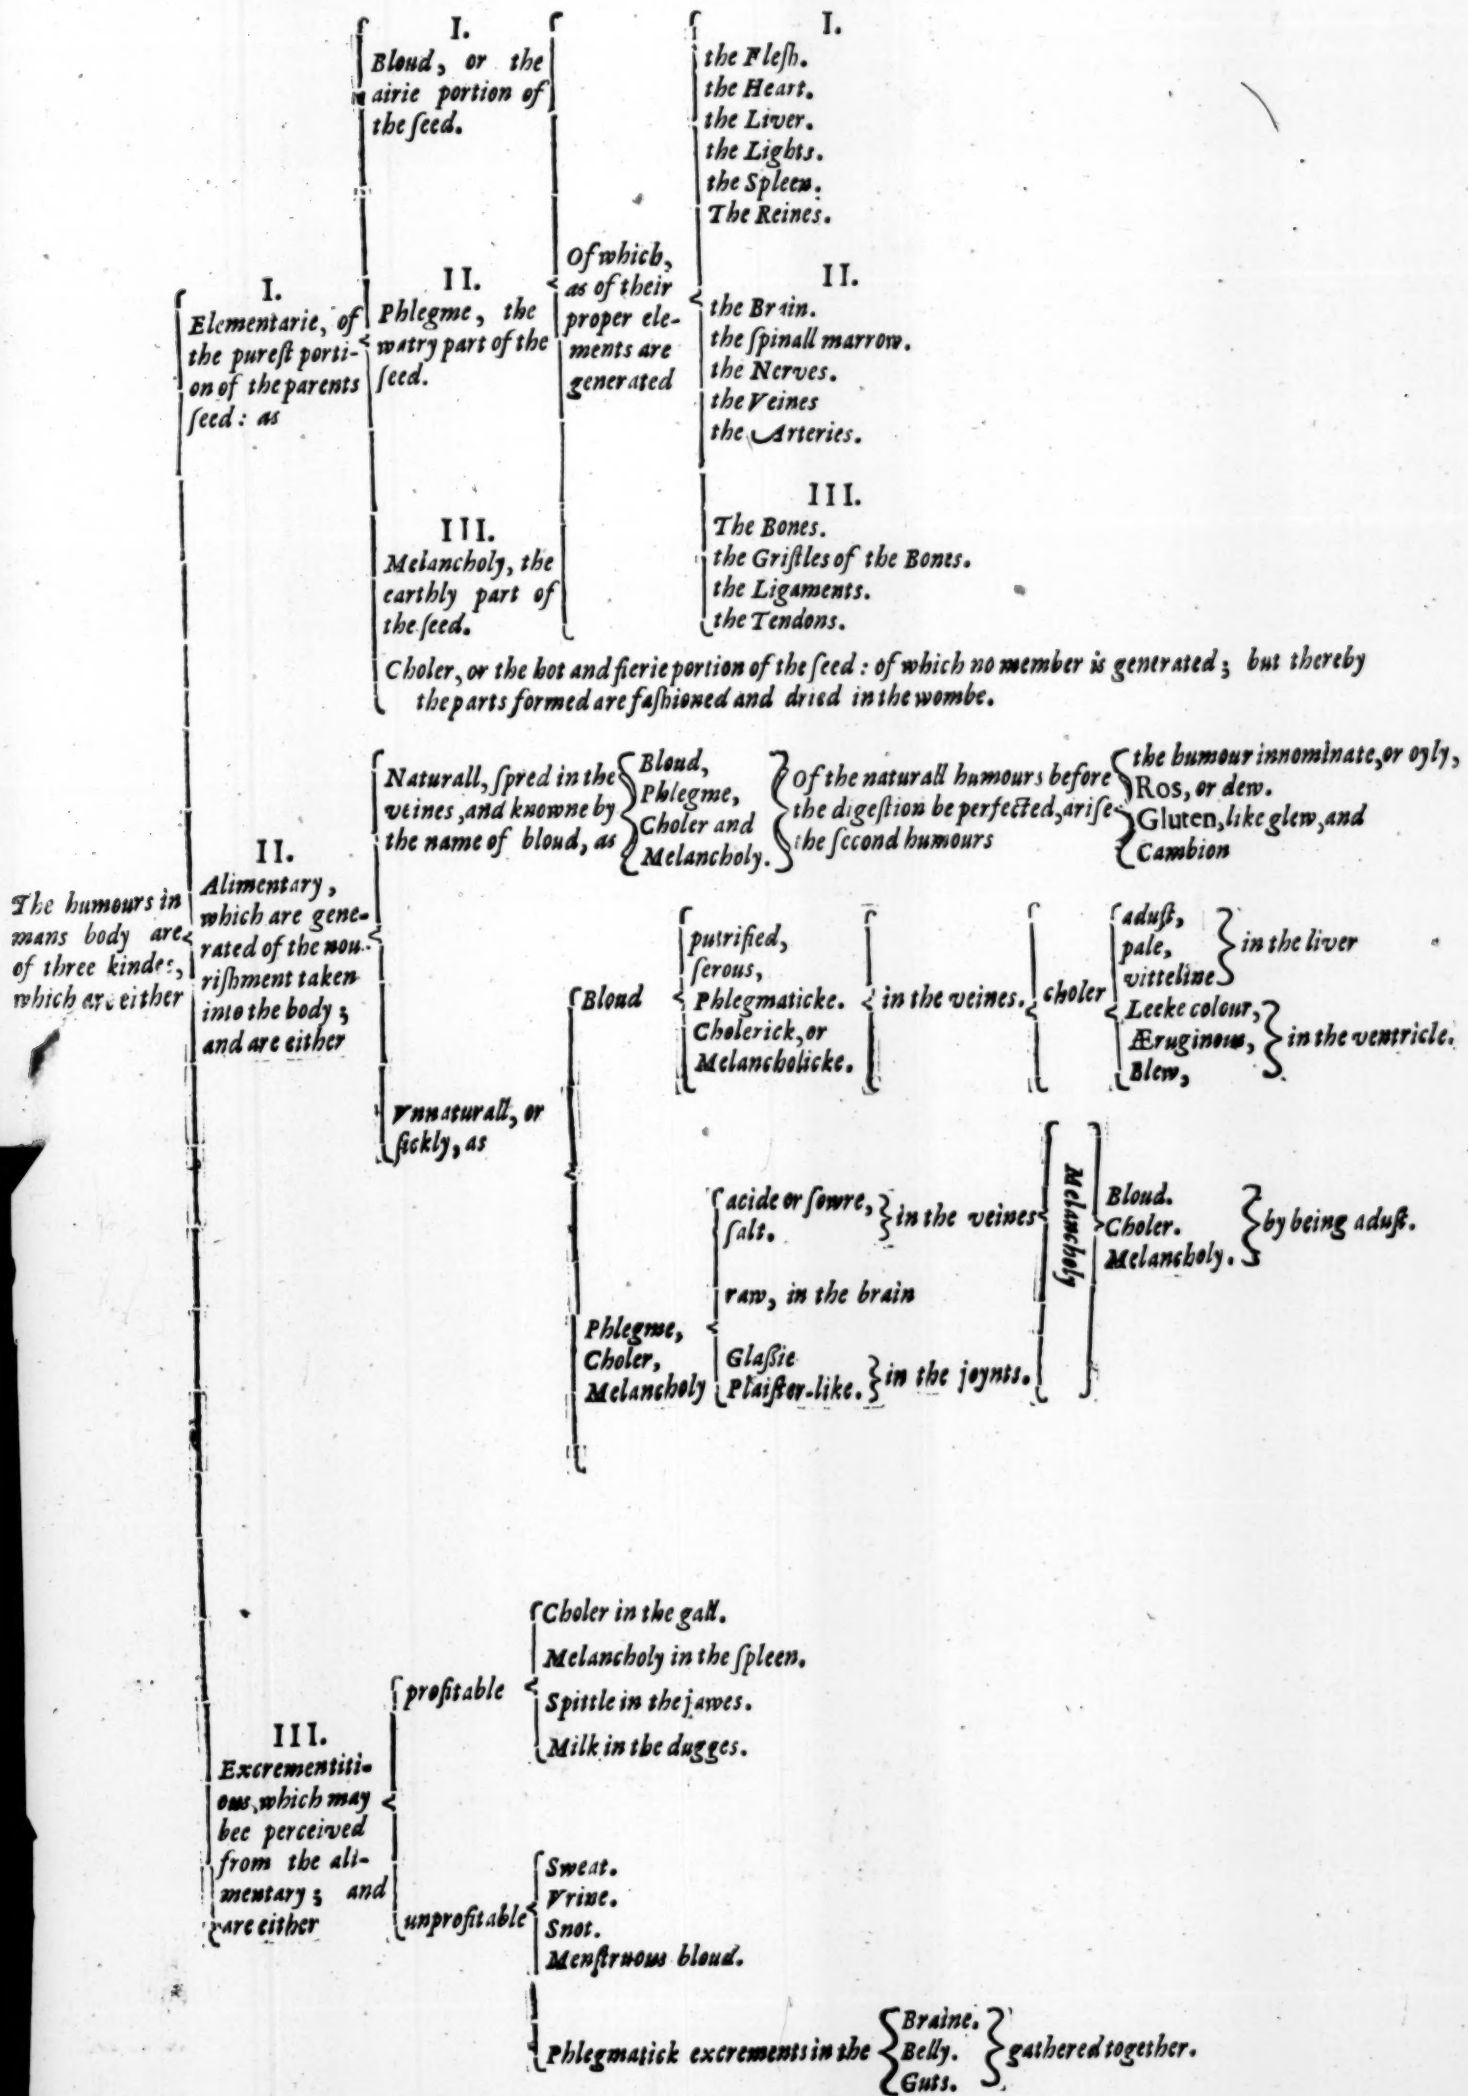 The humours in
mans body are
of three kindes,
which are either
I.
Elementarie, of
the pureſt porti-
on of the parents
ſeed: as
I.
Bloud, or the
airie portion of
the ſeed.
II.
Phlegme, the
watry part of the
ſeed.
III.
Melancholy, the
earthly part of
the ſeed.
Of which,
as of their
proper ele-
ments are
generated
I.
the Fleſh.
the Heart.
the Liver.
the Lights.
the Spleen.
The Reines.
II.
the Brain.
the ſpinall marrow.
the Nerves.
the Veines
the Arteries.
III.
The Bones.
the Griſtles of the Bones.
the Ligaments.
the Tendons.
Choler, or the hot and fierie portion of the ſeed: of which no member is generated; but thereby
the parts formed are faſhioned and dried in the wombe.
II.
Alimentary,
which are gene-
rated of the nou-
riſhment taken
into the body;
and are either
Naturall, ſpred in the
veines, and knowne by
the name of bloud, as
Bloud,
Phlegme,
Choler and
Melancholy.
Of the naturall humours before
the digeſtion be perfected, ariſe
the ſecond humours
the humour innominate, or oyly,
Ros, or dew.
Gluten, like glew, and
Cambion
Vnnaturall, or
ſickly, as
Bloud
putrified,
ſerous,
Phlegmaticke.
Cholerick, or
Melancholicke.
in the veines.
choler
aduſt,
pale,
vitteline
in the liver
Leeke colour,
Æruginous,
Blew,
in the ventricle.
Phlegme,
Choler,
Melancholy
acide or ſowre,
ſalt.
in the veines
raw, in the brain
Glaßie
Plaiſter-like.
in the joynts.
Melancholy
Bloud.
Choler.
Melancholy.
by being aduſt.
III.
Excrementiti-
ous, which may
bee perceived
from the ali-
mentary; and
are either
profitable
Choler in the gall.
Melancholy in the ſpleen.
Spittle in the jawes.
Milk in the dugges.
unprofitable
Sweat.
Vrine.
Snot.
Menſtruous bloud.
Phlegmatick excrements in the
Braine.
Belly.
Guts.
gathered together.